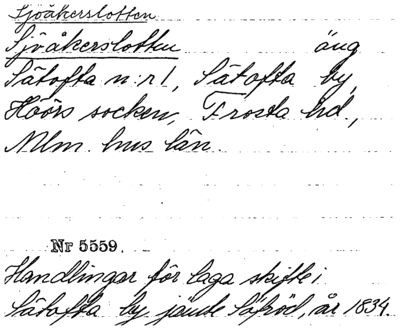 Sjöåkerslotten
Sjöåkerslotten äng
Sätofta n:r 1, Sätofta by,
Höörs socken, Frosta hd.,
Mlm. hus län.
Nr 5559.
Handlingar för laga skifte i
Sätofta by jämte Säfröd, år 1834.